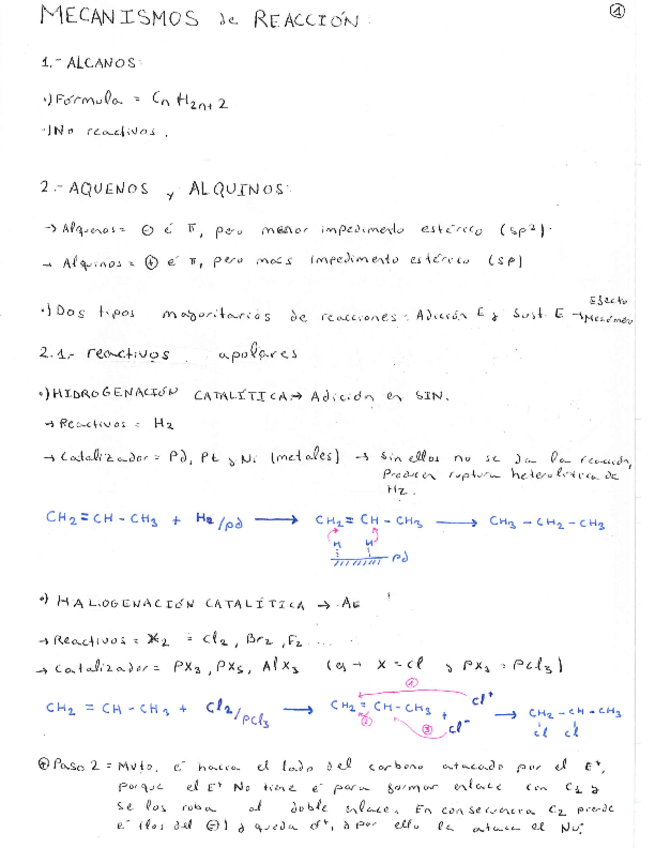 MECANISMOS de REACCIÓN:
①
1.- ALCANOS:
·) Fórmula = CnH2n+2
·) No reactivos.
2.- AQUENOS y ALQUINOS:
→ Alquenos = ⊖ é π, pero menor impedimento estérico (sp²).
→ Alquinos = ⊕ é π, pero más impedimento estérico (sp)
·) Dos tipos mayoritarios de reacciones: Adición E y Sust. E → Efecto Mesómero
2.1.- reactivos apolares
·) HIDROGENACIÓN CATALÍTICA → Adición en SIN.
→ Reactivos = H2
→ Catalizador = Pd, Pt y Ni (metales) → Sin ellos no se da la reacción,
Producen ruptura heterolítica de
H2.
CH2=CH-CH3 + H2/pd → CH2=CH-CH3 → CH3-CH2-CH3
H H
Pd
·) HALOGENACIÓN CATALÍTICA → AE
→ Reactivos = X2 = Cl2, Br2, F2 ....
→ Catalizador = PX3, PX5, AlX3 (ej → X = Cl y PX3 = PCl3)
CH2=CH-CH3 + Cl2/PCl3 → CH2=CH-CH3 + Cl⁺ Cl⁻ → CH2-CH-CH3
① ② ③ Cl Cl
⊕ Paso 2 = Mvto. é hacia el lado del carbono atacado por el E⁺,
porque el E⁺ No tiene é para formar enlace con C1 y
se los roba al doble enlace. En consecuencia C2 pierde
é (los del ⊖) y queda d⁺, y por ello la ataca el Nu: